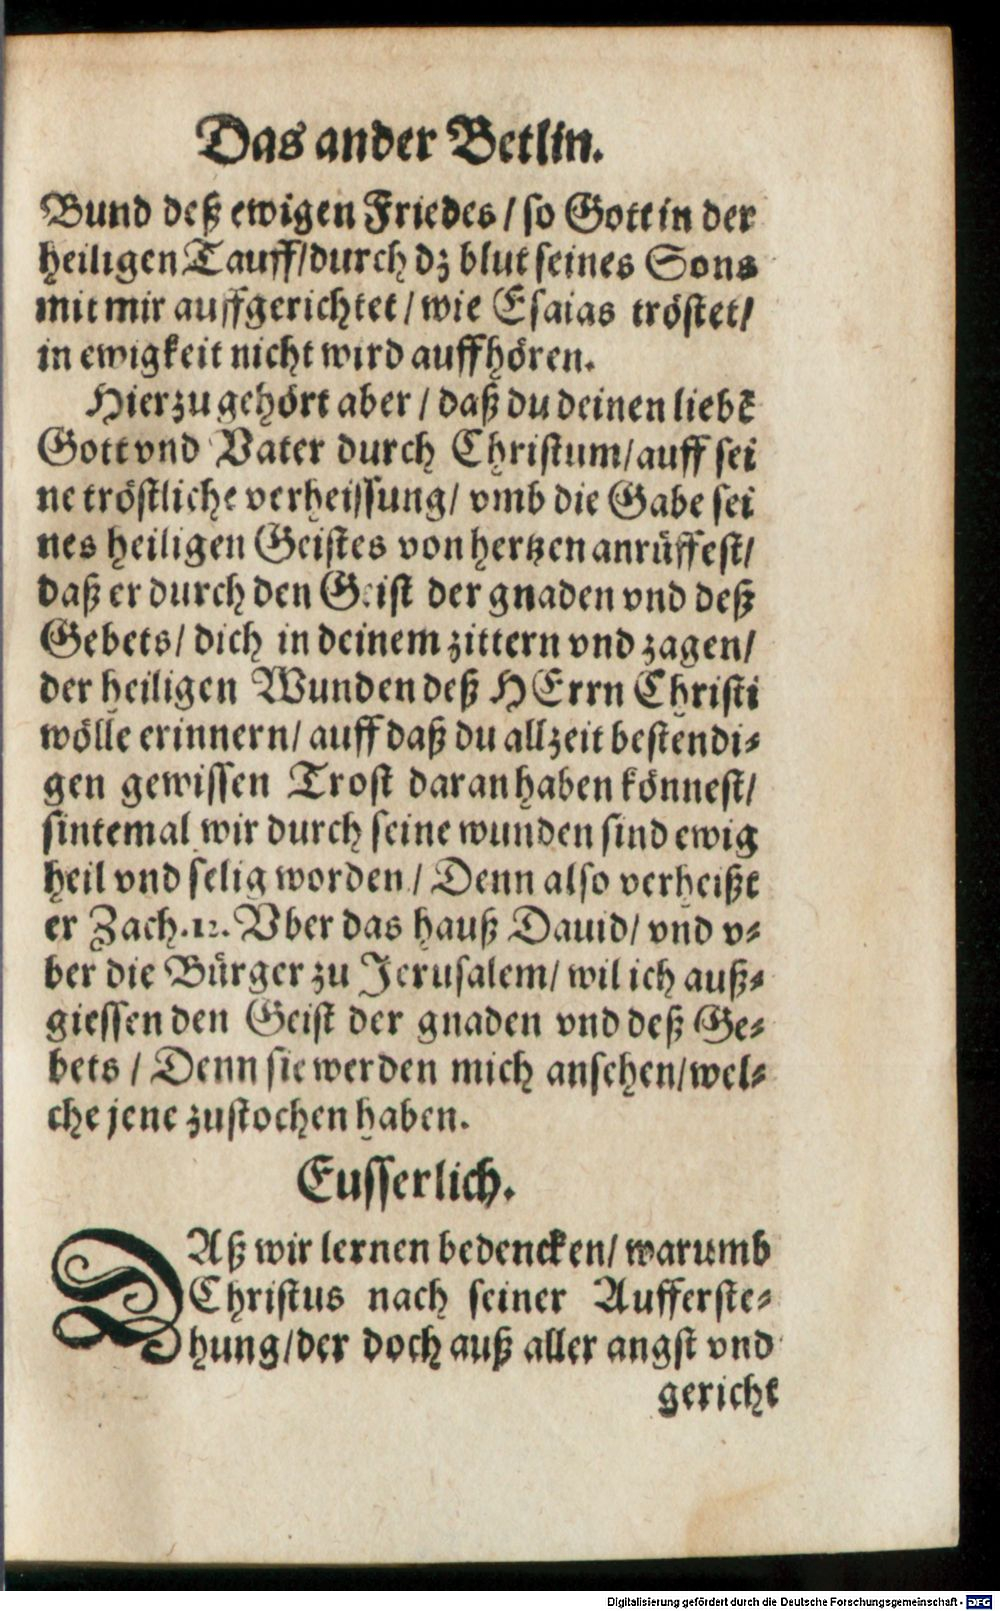 Das ander Betlin.
Bund deß ewigen Friedes / so Gott in der
heiligen Tauff/durch dz blut seines Sons
mit mir auffgerichtet / wie Esaias tröstet/
in ewigkeit nicht wird auffhören.
Hierzu gehört aber / daß du deinen liebẽ
Gott vnd Vater durch Christum/auff sei
ne tröstliche verheissung/ vmb die Gabe sei
nes heiligen Geistes von hertzen anrüffest/
daß er durch den Geist der gnaden vnd deß
Gebets/ dich in deinem zittern vnd zagen/
der heiligen Wunden deß HErrn Christi
wölle erinnern/ auff daß du allzeit bestendi-
gen gewissen Trost daran haben könnest/
sintemal wir durch seine wunden sind ewig
heil vnd selig worden / Denn also verheißt
er Zach.12. Vber das hauß Dauid/ vnd v-
ber die Bürger zu Jerusalem/ wil ich auß-
giessen den Geist der gnaden vnd deß Ge-
bets / Denn sie werden mich ansehen/wel-
che jene zustochen haben.
Eusserlich.
DAß wir lernen bedencken/ warumb
Christus nach seiner Aufferste-
hung/der doch auß aller angst vnd
gericht
Digitalisierung gefördert durch die Deutsche Forschungsgemeinschaft - DFG